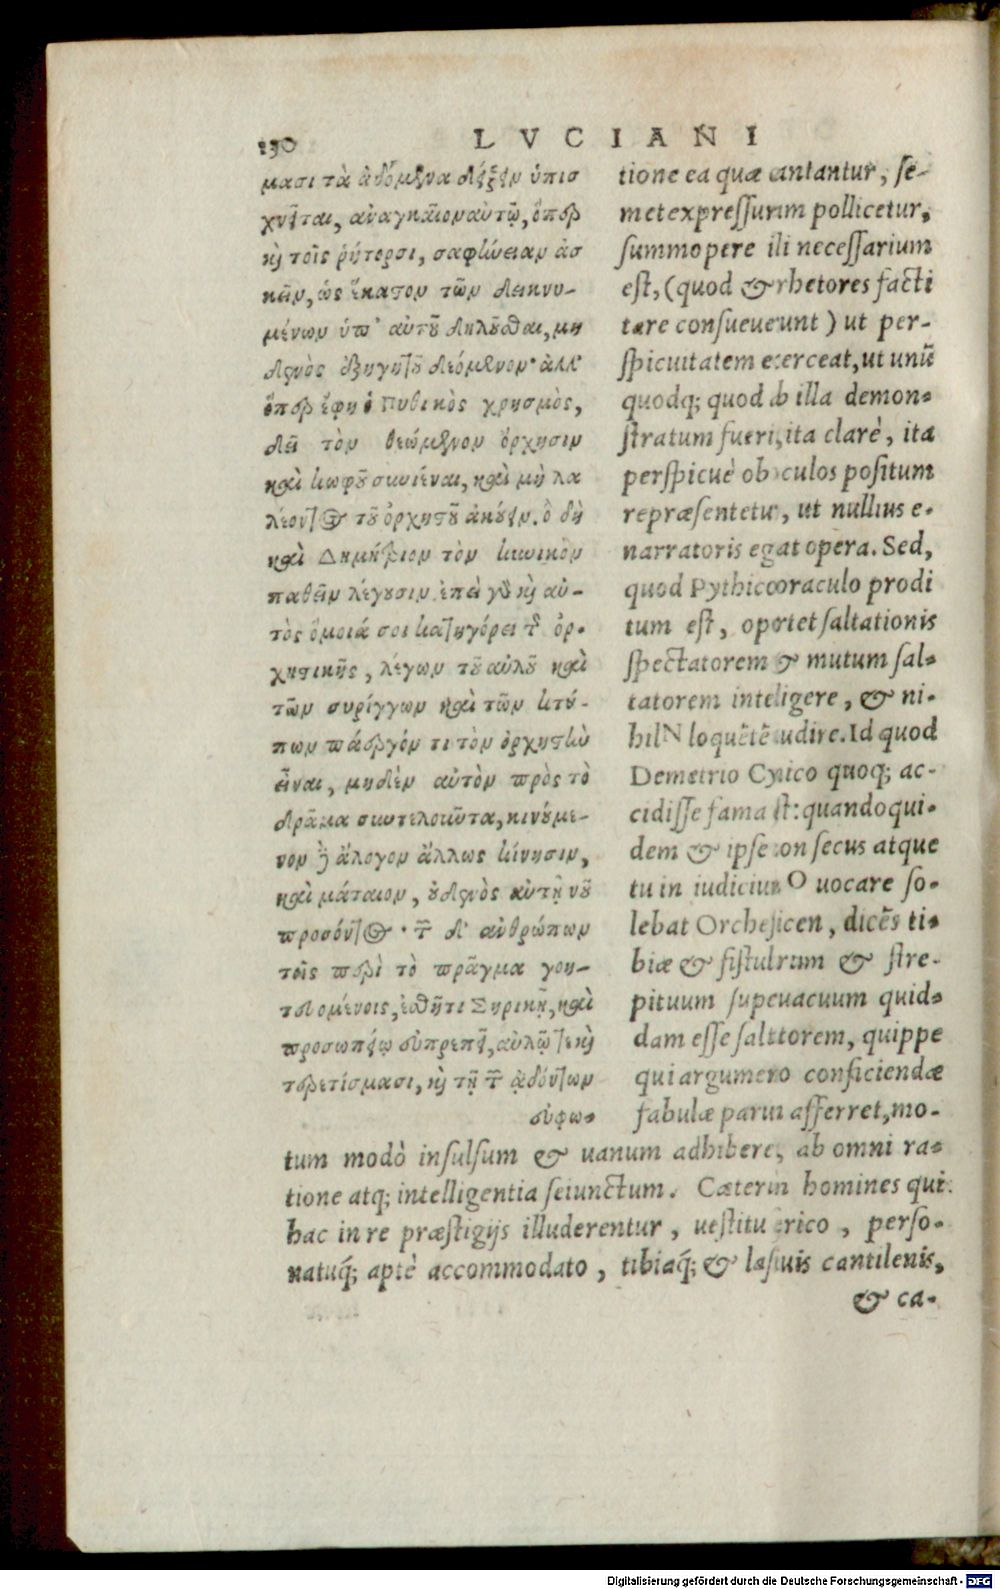 130 LVCIANI
μασι τὰ ᾀδόμενα δείξειν ὑπισ
χνεῖται, ἀναγκαῖον αὐτῷ, ὅπερ
καὶ τοῖς ῥήτορσι, σαφήνειαν ἀσ
κεῖν, ὡς ἕκαστον τῶν δεικνυ-
μένων ὑπ' αὐτοῦ δηλοῦσθαι, μη
δενὸς ἐξηγητοῦ δεόμενον· ἀλλ'
ὅπερ ἔφη ὁ Πυθικὸς χρησμὸς,
δεῖ τὸν θεώμενον ὄρχησιν
καὶ κωφοῦ συνιέναι, καὶ μὴ λα
λέοντος τοῦ ὀρχηστοῦ ἀκούειν. ὃ δὴ
καὶ Δημήτριον τὸν κυνικὸν
παθεῖν λέγουσιν. ἐπεὶ γὰρ καὶ αὐ-
τὸς ὅμοιά σοι κατηγόρει τῆς ὀρ-
χηστικῆς, λέγων τοῦ αὐλοῦ καὶ
τῶν συρίγγων καὶ τῶν κτύ-
πων πάρεργόν τι τὸν ὀρχηστὴν
εἶναι, μηδὲν αὐτὸν πρὸς τὸ
δρᾶμα συντελοῦντα, κινούμε-
νον δὲ ἄλογον ἄλλως κίνησιν,
καὶ μάταιον, οὐδενὸς αὐτῇ νοῦ
προσόντος· τῶν δ' ἀνθρώπων
τοῖς περὶ τὸ πρᾶγμα γοη-
τευομένοις, ἐσθῆτι Σηρικῇ, καὶ
προσωπείῳ εὐπρεπεῖ, αὐλῷ τε καὶ
τερετίσμασι, καὶ τῇ τῶν ᾀδόντων
εὐφω-
tione ea quæ cantantur, se-
met expressurum pollicetur,
summopere illi necessarium
est, (quod & rhetores facti
tare consueuerunt) ut per-
spicuitatem exerceat, ut unũ
quodq; quod ab illa demon-
stratum fuerit, ita clarè, ita
perspicuè ob oculos positum
repræsentetur, ut nullius e-
narratoris egat opera. Sed,
quod Pythico oraculo prodi
tum est, oportet saltationis
spectatorem & mutum sal-
tatorem intelligere, & ni-
hil N loquẽtẽ audire. Id quod
Demetrio Cynico quoq; ac-
cidisse fama est: quandoqui-
dem & ipse non secus atque
tu in iudicium O uocare so-
lebat Orchesticen, dicẽs ti-
biæ & fistularum & stre-
pituum superuacuum quid-
dam esse saltatorem, quippe
qui argumento conficiendæ
fabulæ parum afferret, mo-
tum modò insulsum & uanum adhibere, ab omni ra-
tione atq; intelligentia seiunctum. Cæterum homines qui
hac in re præstigijs illuderentur, uestitu serico, perso-
natuq́; aptè accommodato, tibiaq́; & lasciuis cantilenis,
& ca-
Digitalisierung gefördert durch die Deutsche Forschungsgemeinschaft - DFG